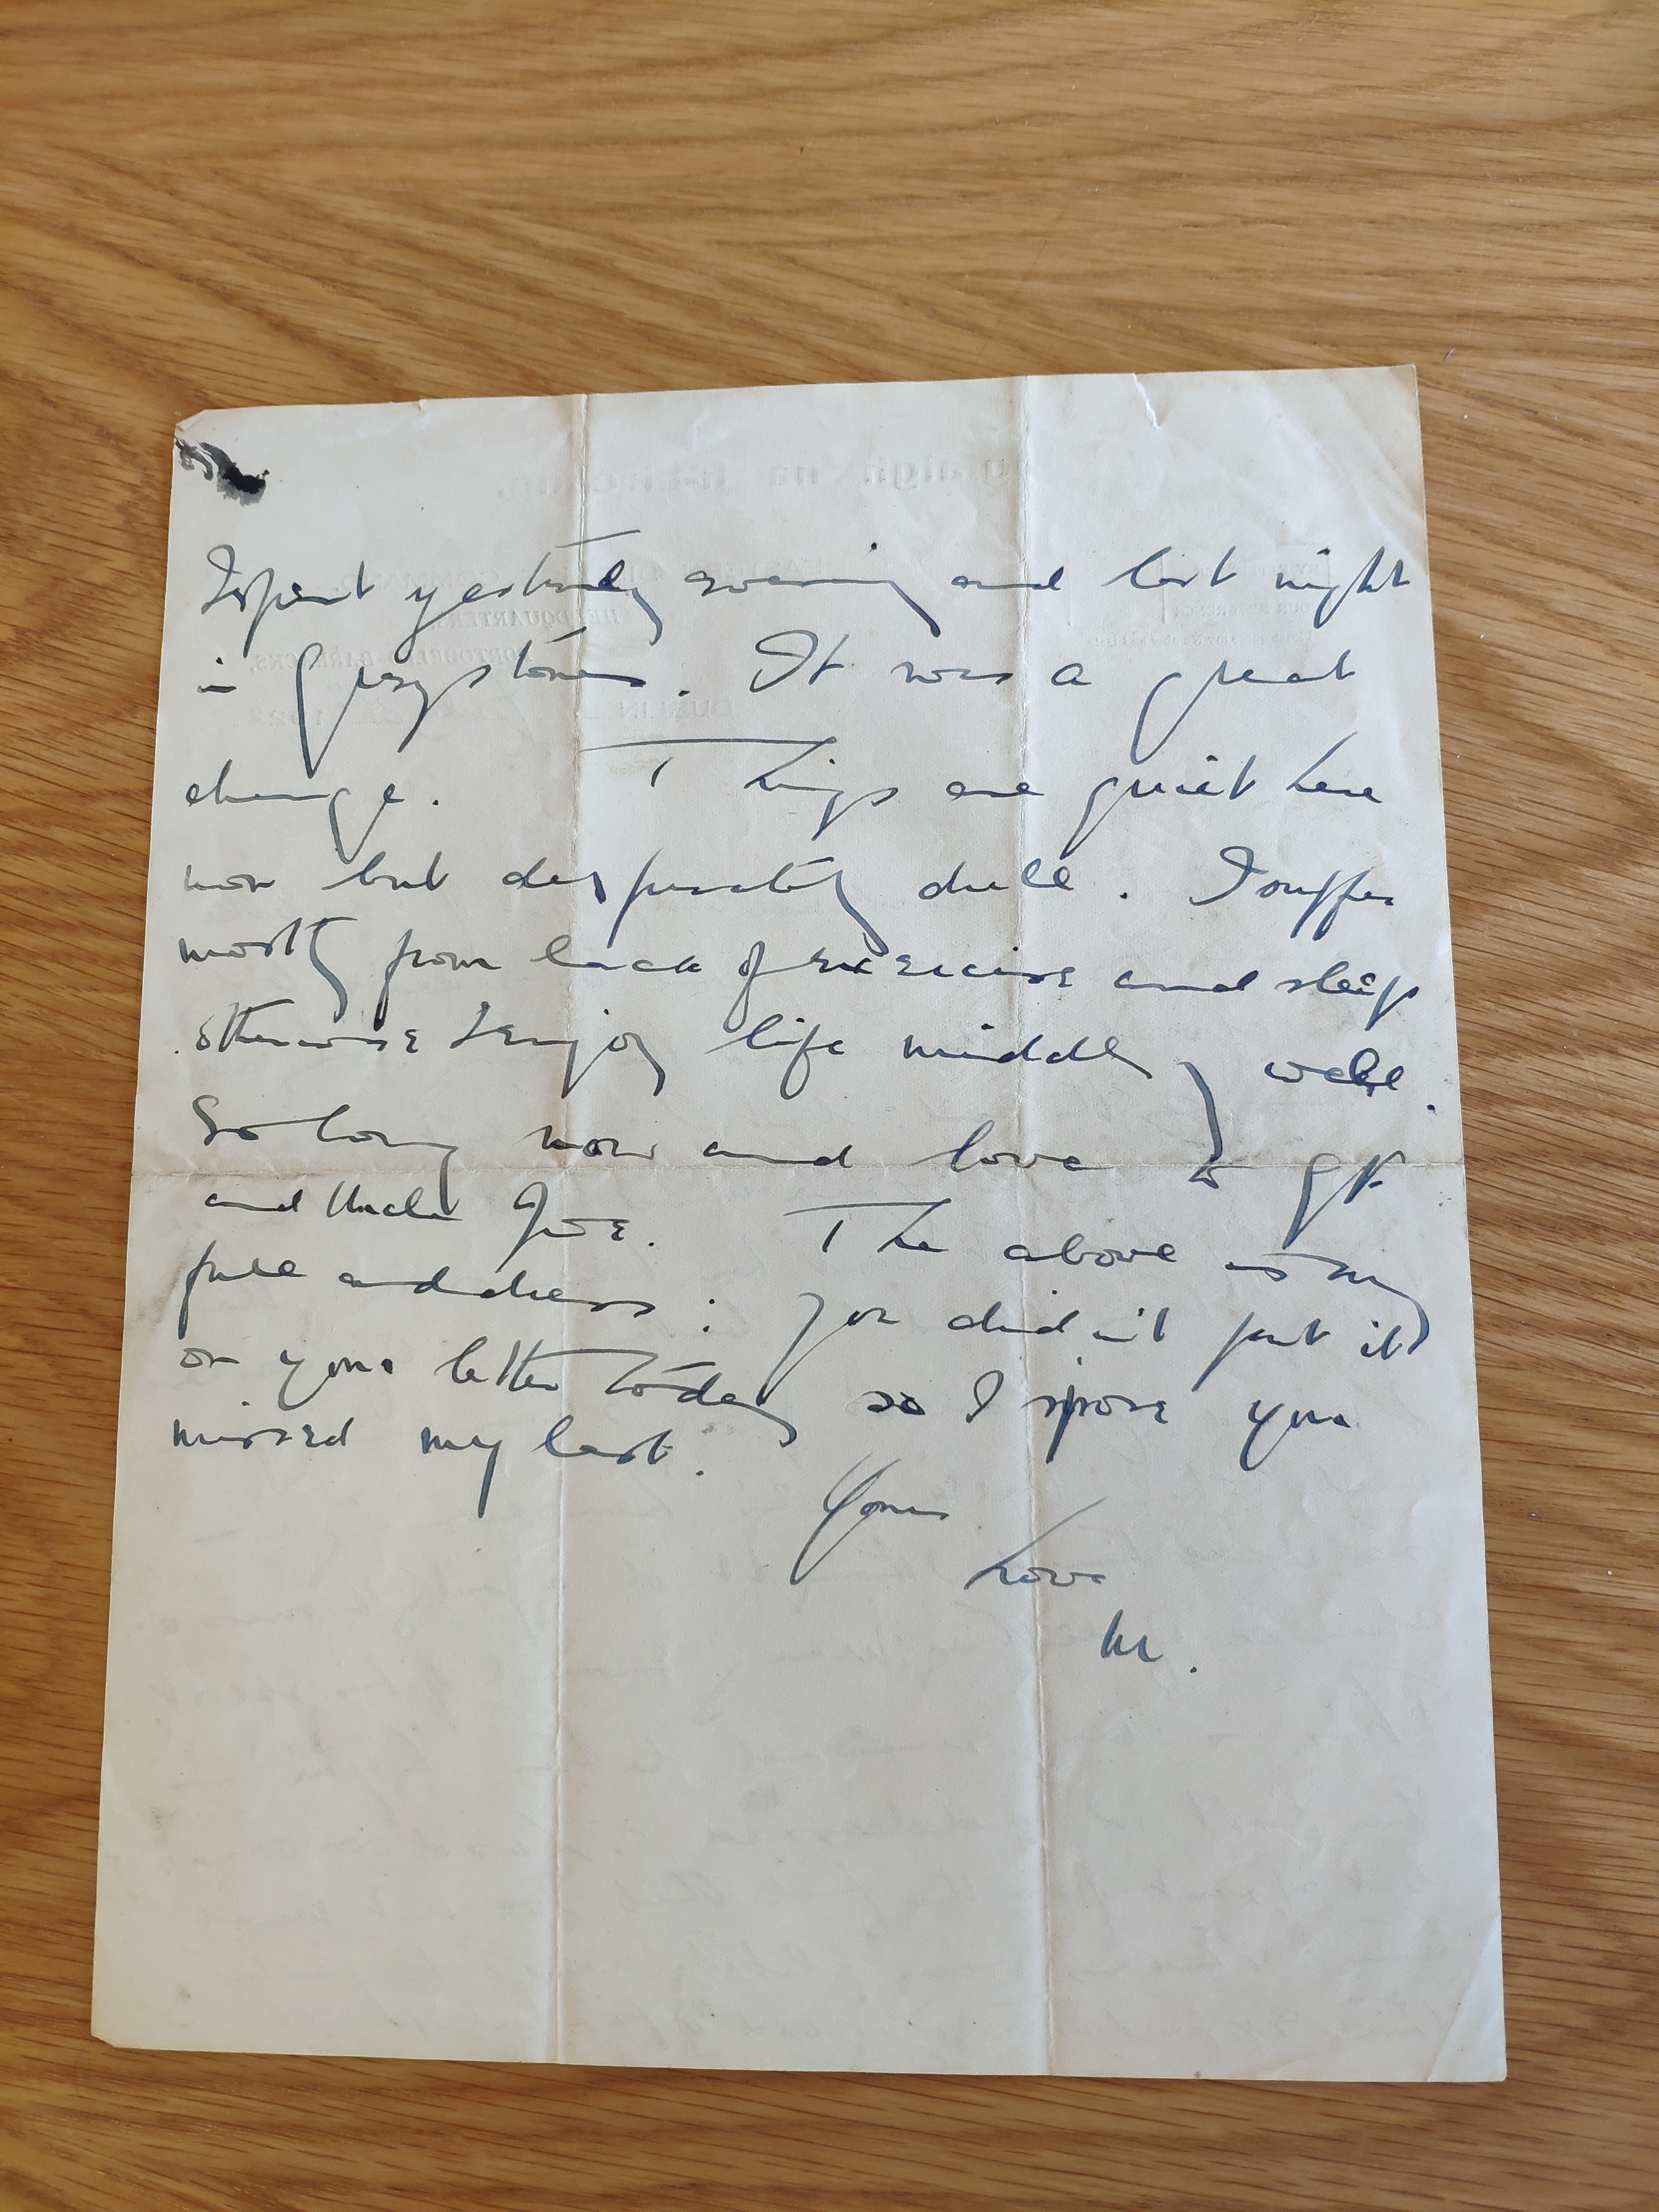 I spent yesterday evening and last night
in Greystones. It was a great
change. Things are quiet here
now but desperately dull. I suffer
mostly from lack of exercise and sleep
otherwise I enjoy life middly well.
So long now and love to
and Uncle Joe. The above is my
full address: you didn't put it
on your letter today so I spose you
missed my last.
Yours
Love
M.
HEADQUARTERS,
PORTOBELLO BARRACKS,
DUBLIN